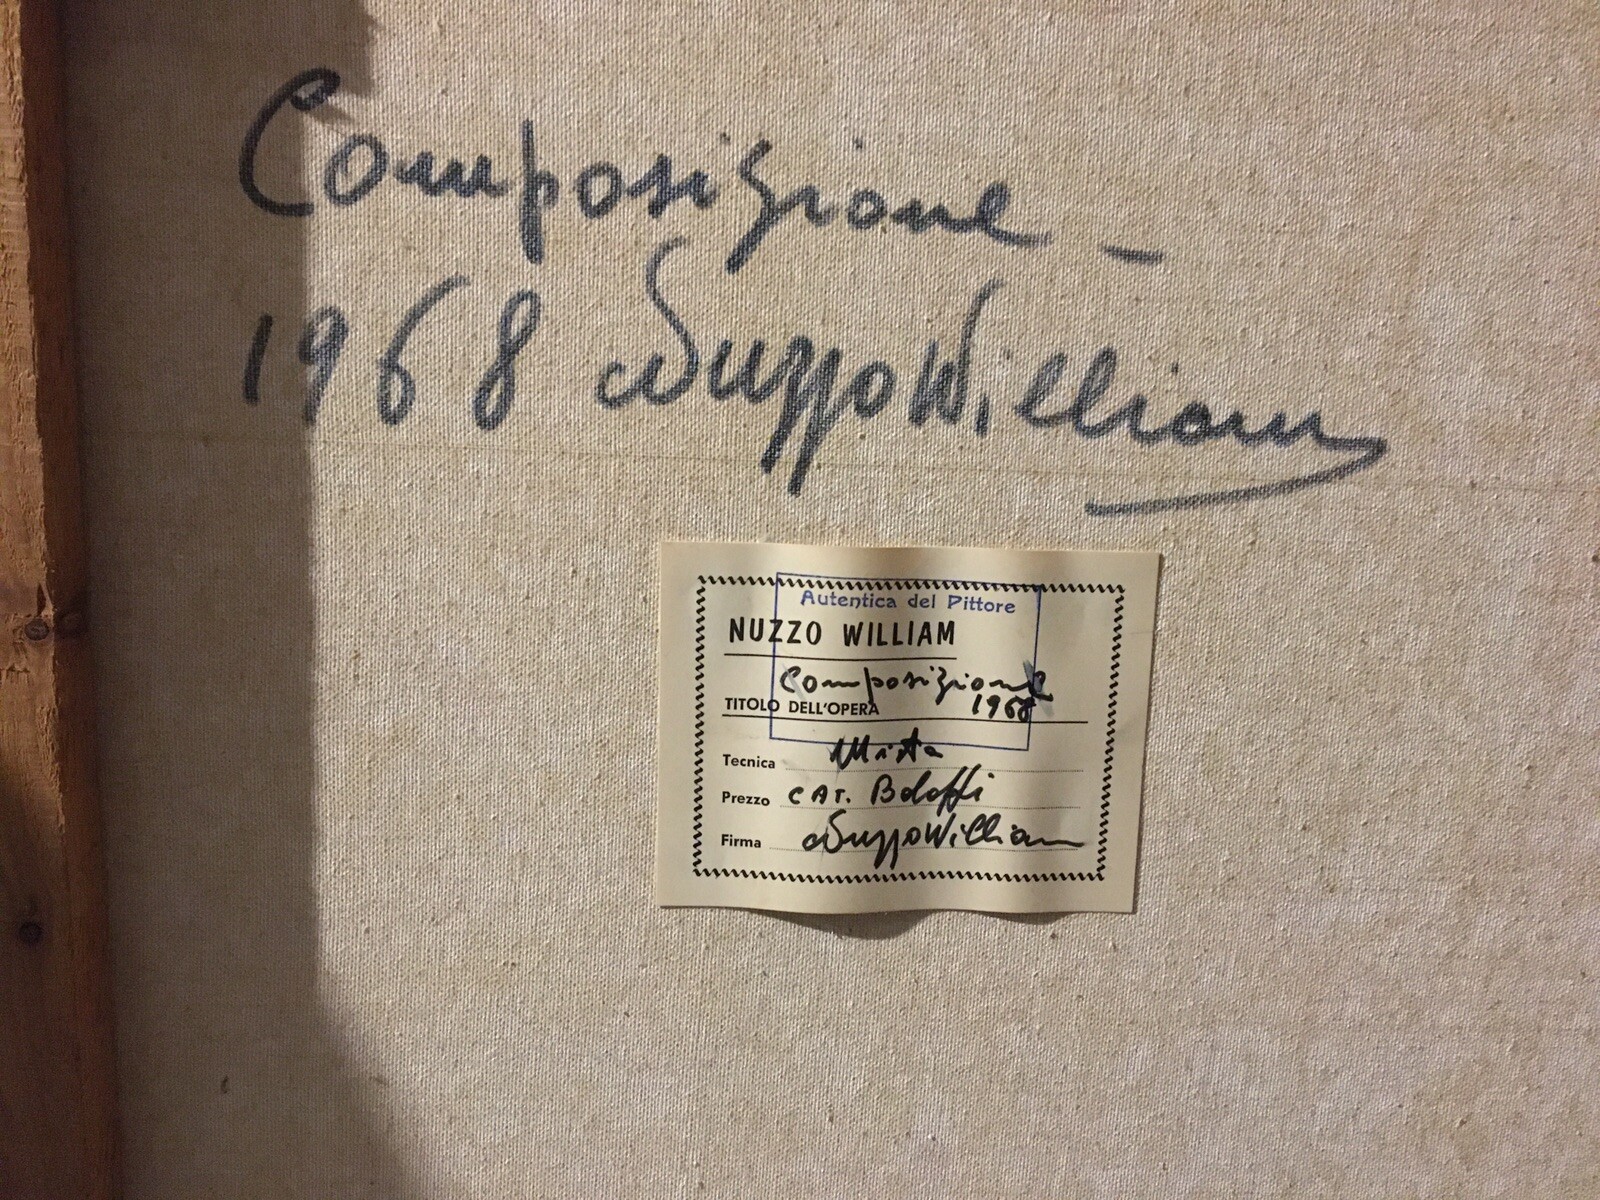 Composizione -
1968 Nuzzo William
Autentica del Pittore
NUZZO WILLIAM
Composizione
TITOLO DELL'OPERA 1968
Tecnica Mista
Prezzo CAT. Bolaffi
Firma Nuzzo William